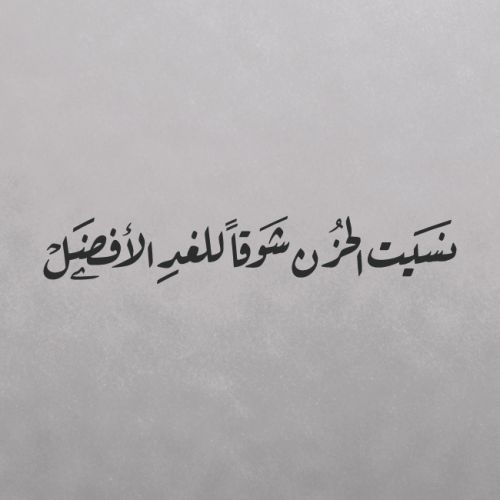 نسَيَت الحزُن شَوَقاً للغدِ الأفضَلْ